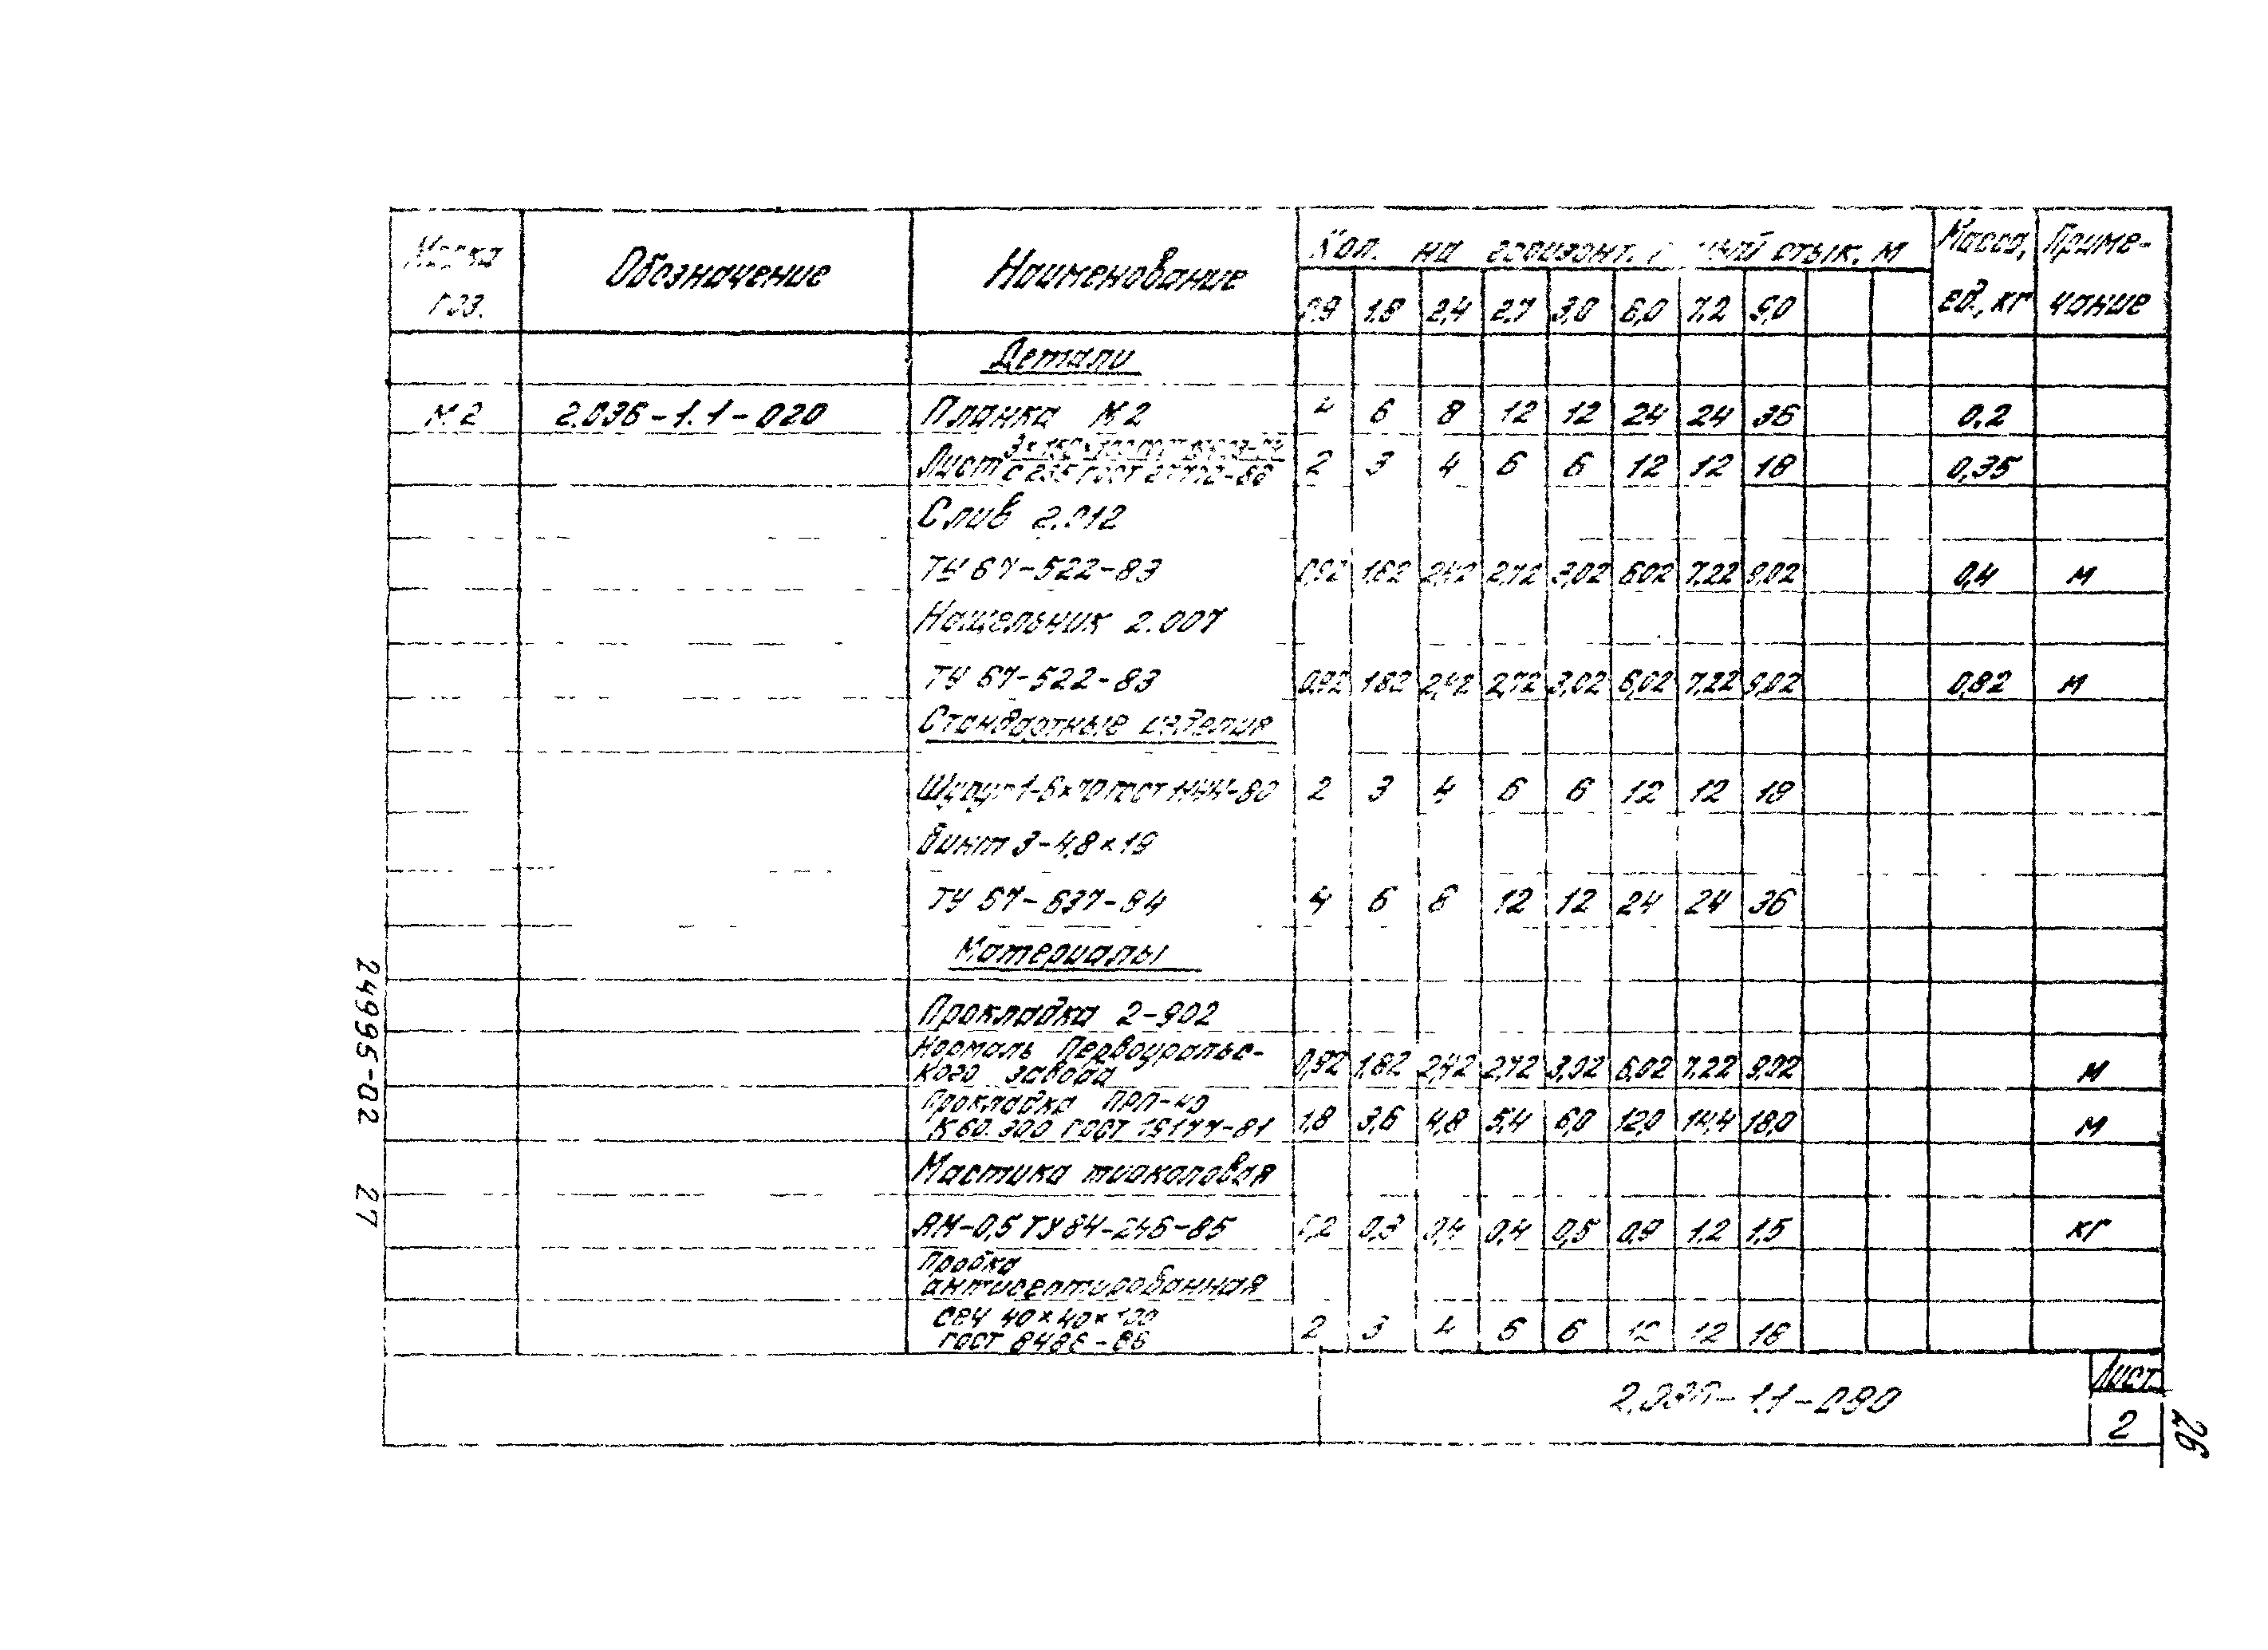 Марка Обозначение Наименование Кол. на горизонт. стык, м Масса, Приме-
поз. 0,9 1,8 2,4 2,7 3,0 6,0 7,2 9,0 ед., кг чание
Детали
М2 2.036-1.1-020 Планка М2 4 6 8 12 12 24 24 36 0,2
Лист С235 ГОСТ 2 3 4 6 6 12 12 18 0,35
Слив 2.012
ТУ 67-522-83 0,92 1,82 2,42 2,72 3,02 6,02 7,22 9,02 0,4 м
Нащельник 2.007
ТУ 67-522-83 0,92 1,82 2,42 2,72 3,02 6,02 7,22 9,02 0,82 м
Стандартные изделия
Шуруп 1-6×70 ГОСТ 2 3 4 6 6 12 12 18
Винт 3-4,8×19
ТУ 67-637-84 4 6 8 12 12 24 24 36
Материалы
Прокладка 2-902
Нормаль Первоуральс-
кого завода 0,92 1,82 2,42 2,72 3,02 6,02 7,22 9,02 м
Прокладка ПРП-40
К60.300 ГОСТ 19177-81 1,8 3,6 4,8 5,4 6,0 12,0 14,4 18,0 м
Мастика тиоколовая
АМ-0,5 ТУ 84-246-85 0,2 0,3 0,4 0,4 0,5 0,9 1,2 1,5 кг
Пробка
антисептированная
сеч 40×40×100
ГОСТ 8486-86 2 3 4 6 6 12 12 18
2.036-1.1-090 Лист
2
24995-02 27
26